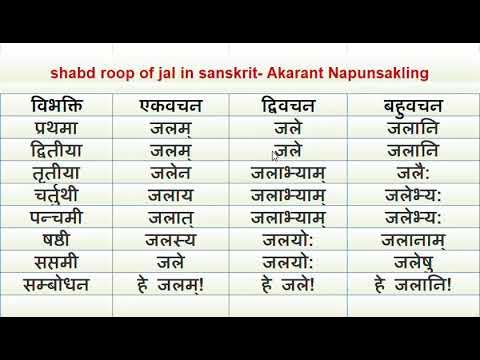 shabd roop of jal in sanskrit- Akarant Napunsakling
विभक्ति एकवचन द्विवचन बहुवचन
प्रथमा जलम् जले जलानि
द्वितीया जलम् जले जलानि
तृतीया जलेन जलाभ्याम् जलै:
चर्तुथी जलाय जलाभ्याम् जलेभ्य:
पन्चमी जलात् जलाभ्याम् जलेभ्य:
षष्ठी जलस्य जलयो: जलानाम्
सप्तमी जले जलयो: जलेषु
सम्बोधन हे जलम्! हे जले! हे जलानि!